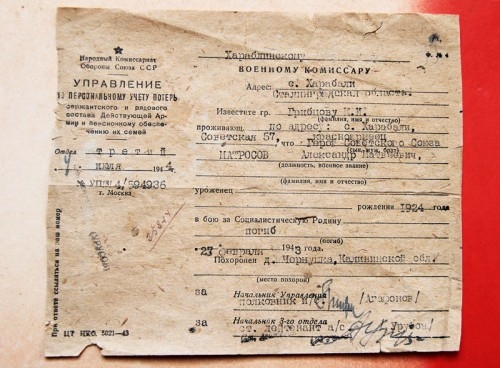 Народный Комиссариат
Обороны Союза ССР
УПРАВЛЕНИЕ
ПО ПЕРСОНАЛЬНОМУ УЧЕТУ ПОТЕРЬ
сержантского и рядового
состава Действующей Ар-
мии и пенсионному обеспе-
чению их семей
Отдел третий
июля 1944
№ УПП4/594936
г. Москва
При ответе ссылаться на наш номер
ЦТ НКО. 5021—43
Харабалинскому
Ф. № 4
ВОЕННОМУ КОМИССАРУ
Адрес: с. Харабали
Сталинградская область.
Известите гр.
(фамилия, имя и отчество)
проживающ. по адрес: с. Харабали,
Советская 57, красноармеец
что Герой Советского Союза
(сын, муж, брат)
МАТРОСОВ Александр Матвеевич,
(должность, военное звание)
(фамилия, имя и отчество)
уроженец
рождения 1924 года
в бою за Социалистическую Родину
погиб
(погиб)
23 февраля 1943 года.
Похоронен д. Чернушка, Калининской обл/
(место похорон)
за Начальник Управления
полковник и/с /Агафонов/
за Начальник 3-го отдела
ст. лейтенант а/с